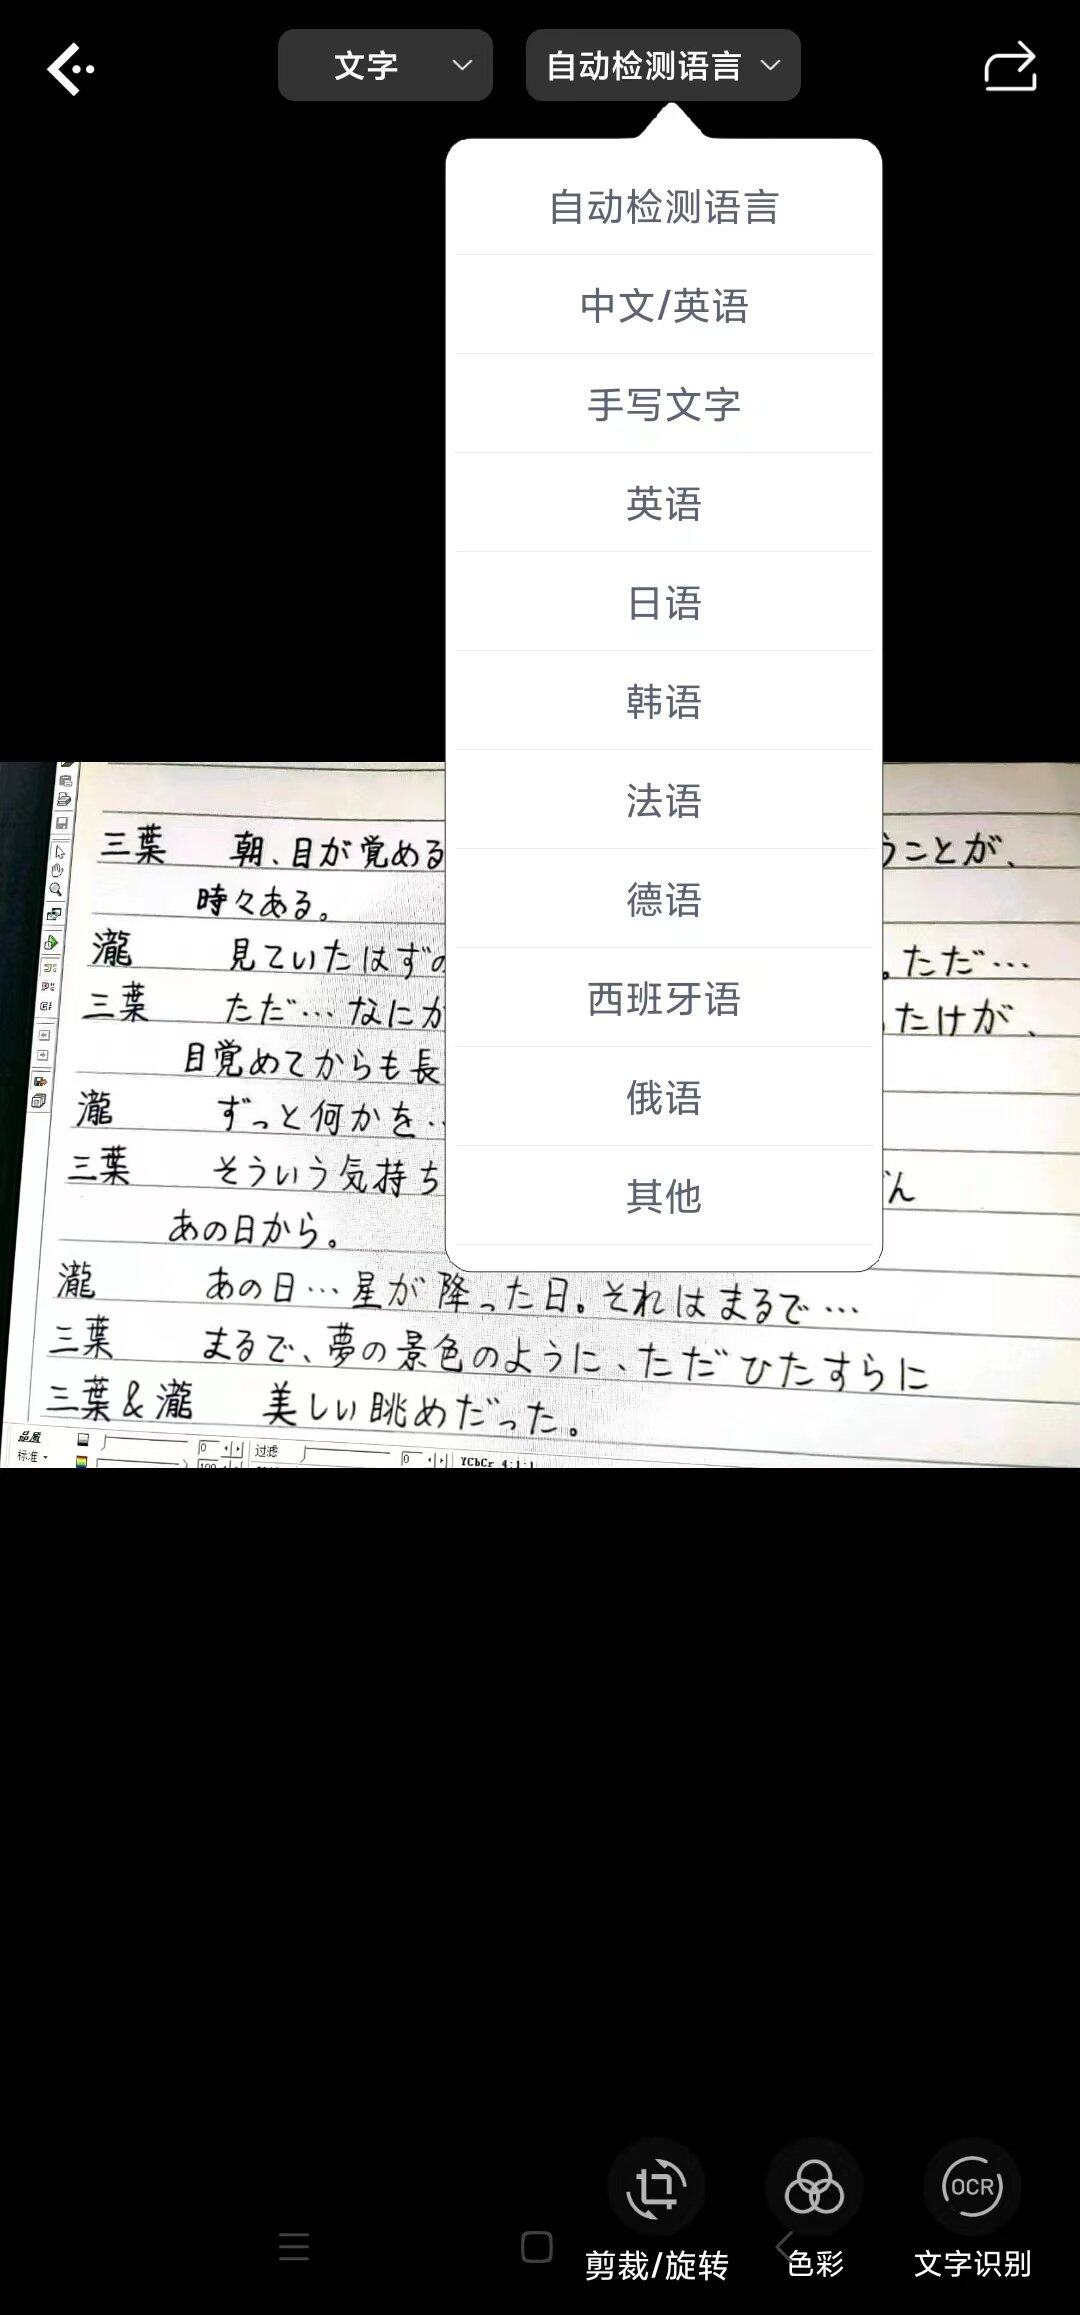 文字
自动检测语言
自动检测语言
中文/英语
手写文字
英语
日语
韩语
法语
德语
西班牙语
俄语
其他
三葉 朝、目が覚める うことが、
時々ある。
瀧 見ていたはずの 。ただ…
三葉 ただ…なにか したけが、
目覚めてからも長
瀧 ずっと何かを…
三葉 そういう気持ち ん
あの日から。
瀧 あの日…星が降った日。それはまるで…
三葉 まるで、夢の景色のように、ただひたすらに
三葉&瀧 美しい眺めだった。
品质
标准
0 过滤 0 YCbCr 4:1:1
100
剪裁/旋转
色彩
OCR
文字识别